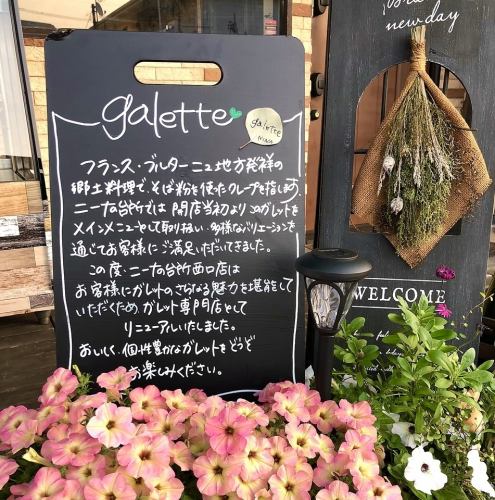 galette
galette
フランス・ブルターニュ地方発祥の
郷土料理で、そば粉を使たクレープを指します。
ニーナ台所では 開店当初より このガレットを
メインメニューとして取り扱い、多様なバリエーションを
通じてお客様にご満足いただいてきました。
この度、ニーナ台所西口店は
お客様にガレットのさらなる魅力を堪能して
いただくため、ガレット専門店として
リニューアルいたしました。
おいしく、個性豊かなガレットをどうぞ
お楽しみください。
new day
WELCOME